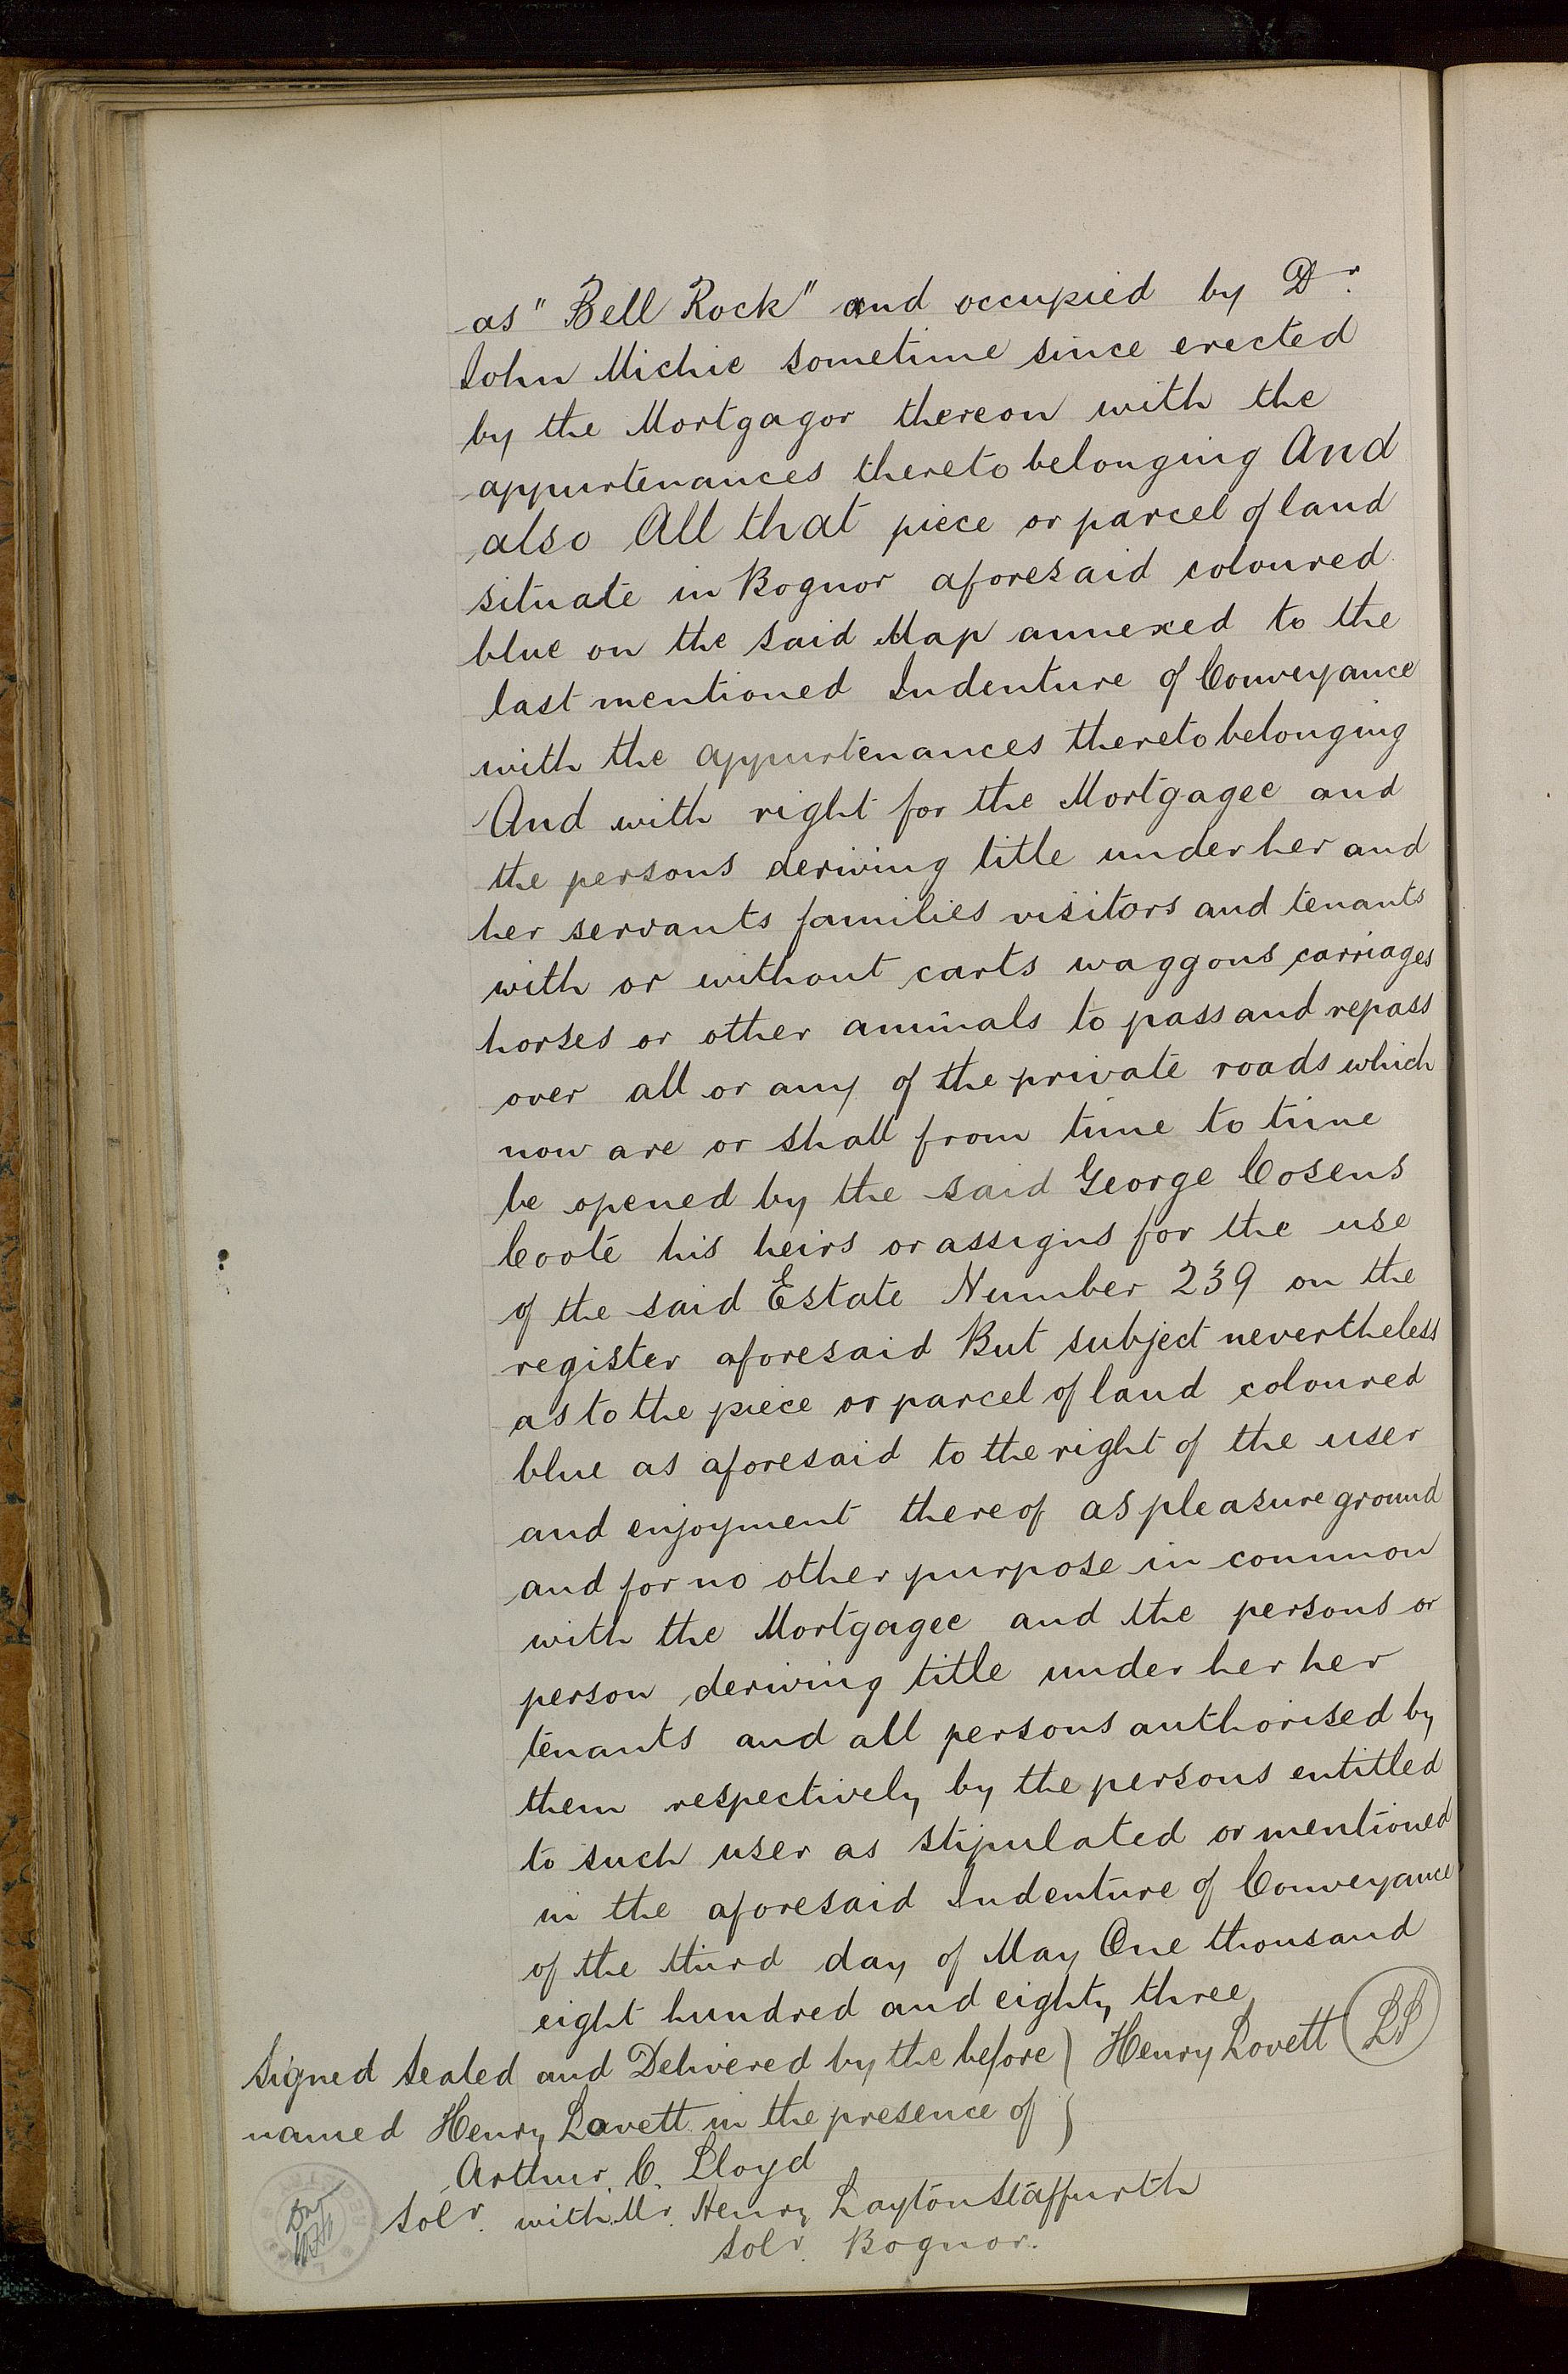 as "Bell Rock" and occupied by Dr.
John Michie sometime since erected
by the Mortgagor thereon with the
appurtenances thereto belonging And
also All that piece or parcel of land
situate in Bognor aforesaid coloured
blue on the said Map annexed to the
last mentioned Indenture of Conveyance
with the appurtenances thereto belonging
And with right for the Mortgagee and
the persons deriving title under her and
her servants families visitors and tenants
with or without carts waggons carriages
horses or other animals to pass and repass
over all or any of the private roads which
now are or shall from time to time
be opened by the said George Cosens
Coote his heirs or assigns for the use
of the said Estate Number 239 on the
register aforesaid But subject nevertheless
as to the piece or parcel of land coloured
blue as aforesaid to the right of the user
and enjoyment thereof as pleasure ground
and for no other purpose in common
with the Mortgagee and the persons or
person deriving title under her her
tenants and all persons authorised by
them respectively by the persons entitled
to such user as stipulated or mentioned
in the aforesaid Indenture of Conveyance
of the third day of May One thousand
eight hundred and eighty three
Signed Sealed and Delivered by the before } Henry Lovett LS
named Henry Lovett in the presence of }
Arthur. C. Lloyd
Solr. with Mr. Henry Layton Staffurth
Solr. Bognor.